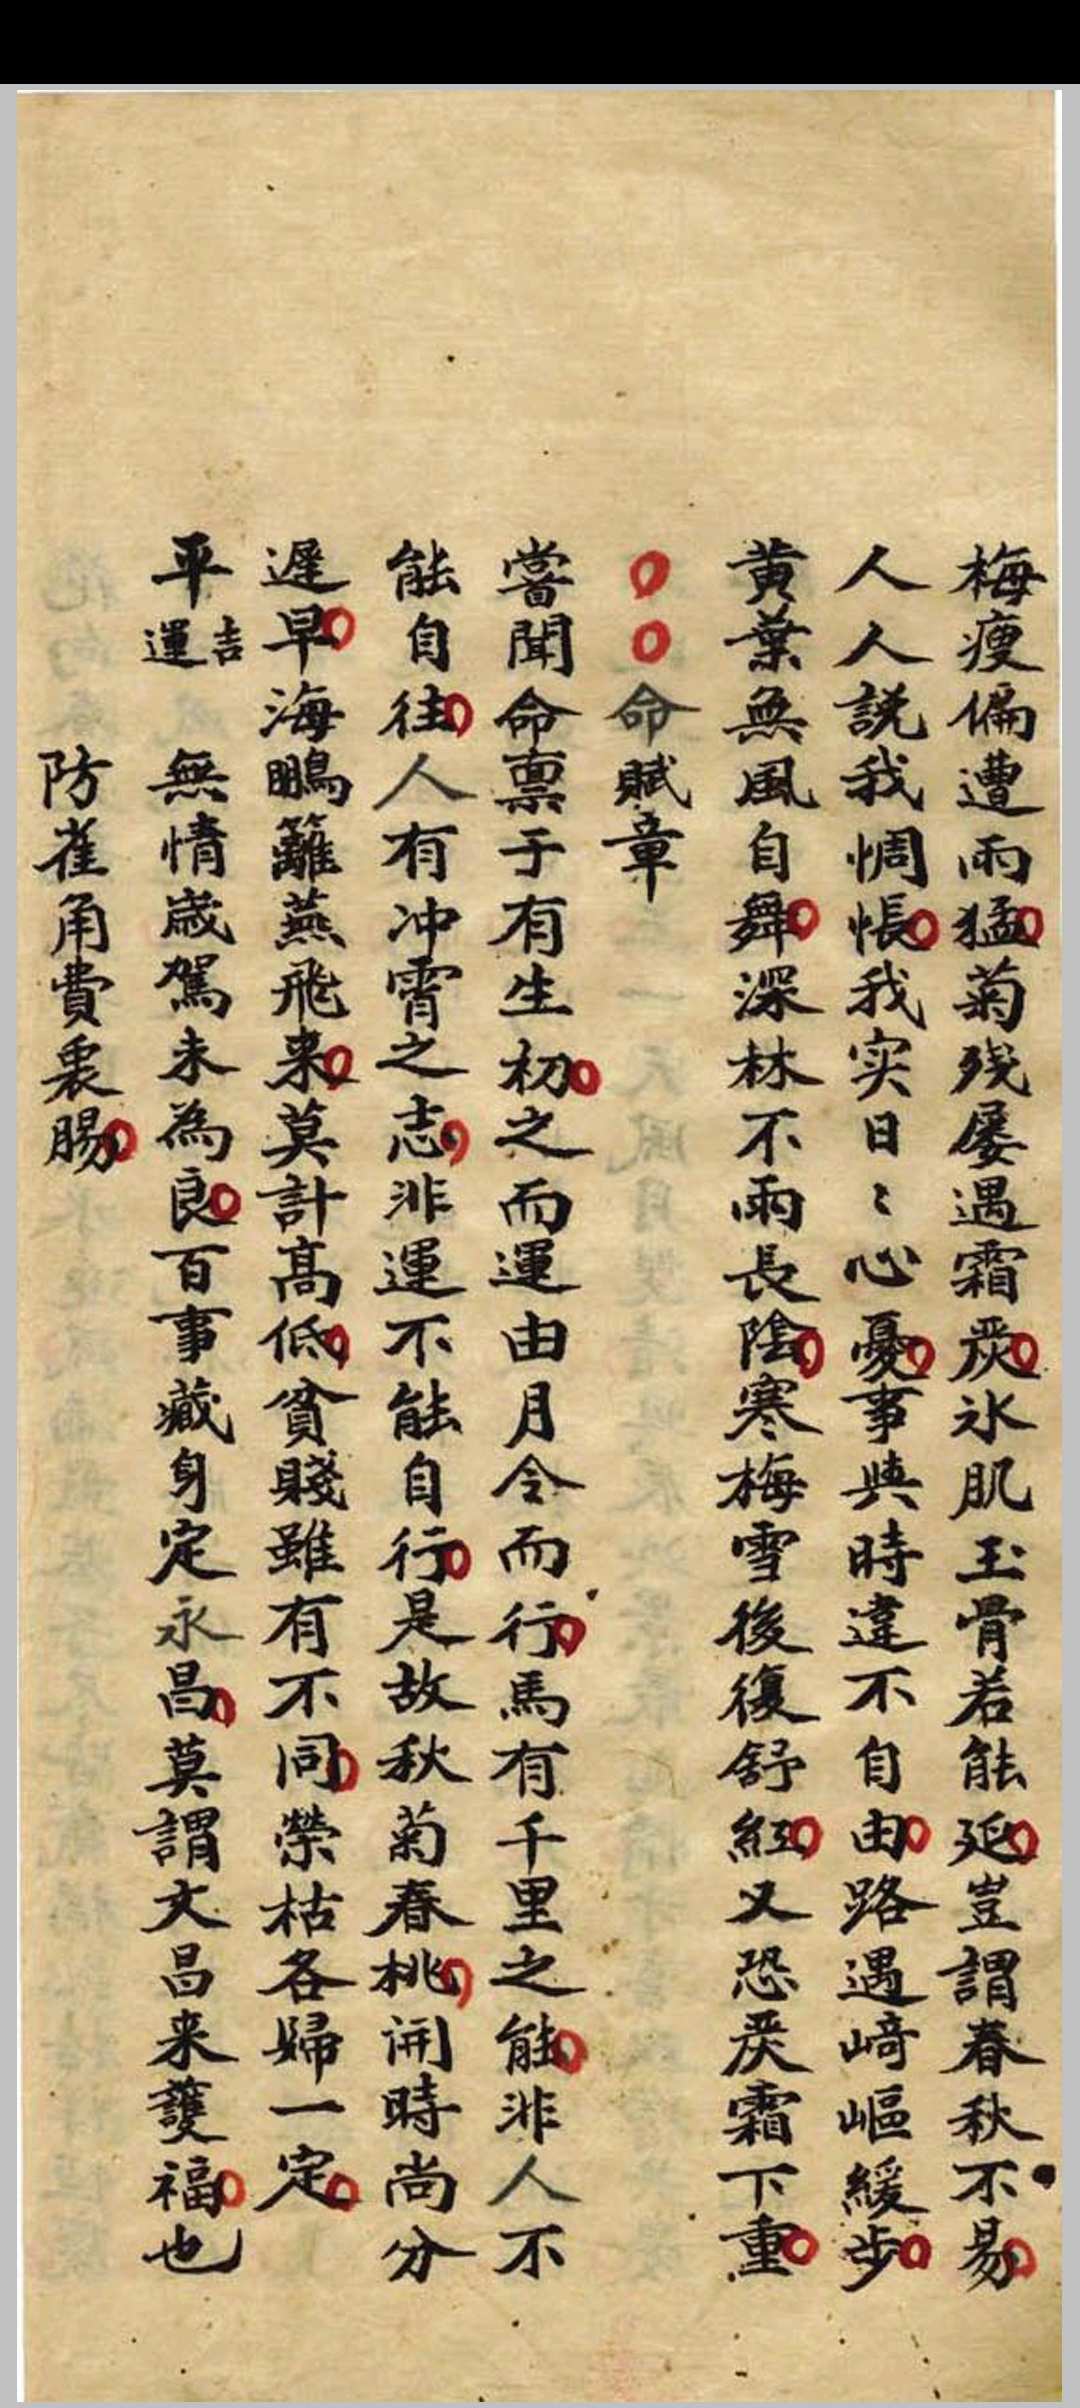 梅瘦偏遭雨猛菊残屡遇霜严氷肌玉骨若能延豈謂春秋不易
人人説我惆悵我实日〻心憂事與時違不自由路遇﨑嶇緩步
黄葉無風自舞深林不雨長陰寒梅雪後復舒紅又恐严霜下重
命賦章
嘗聞命禀于有生初之而運由月令而行馬有千里之能非人不
能自往人有冲霄之志非運不能自行是故秋菊春桃開時尚分
遲早海鵬籬燕飛来莫計髙低貧賤雖有不同榮枯各歸一定
平運吉 無情歳駕未為良百事藏身定永昌莫謂文昌来護福也
防雀角費衷腸